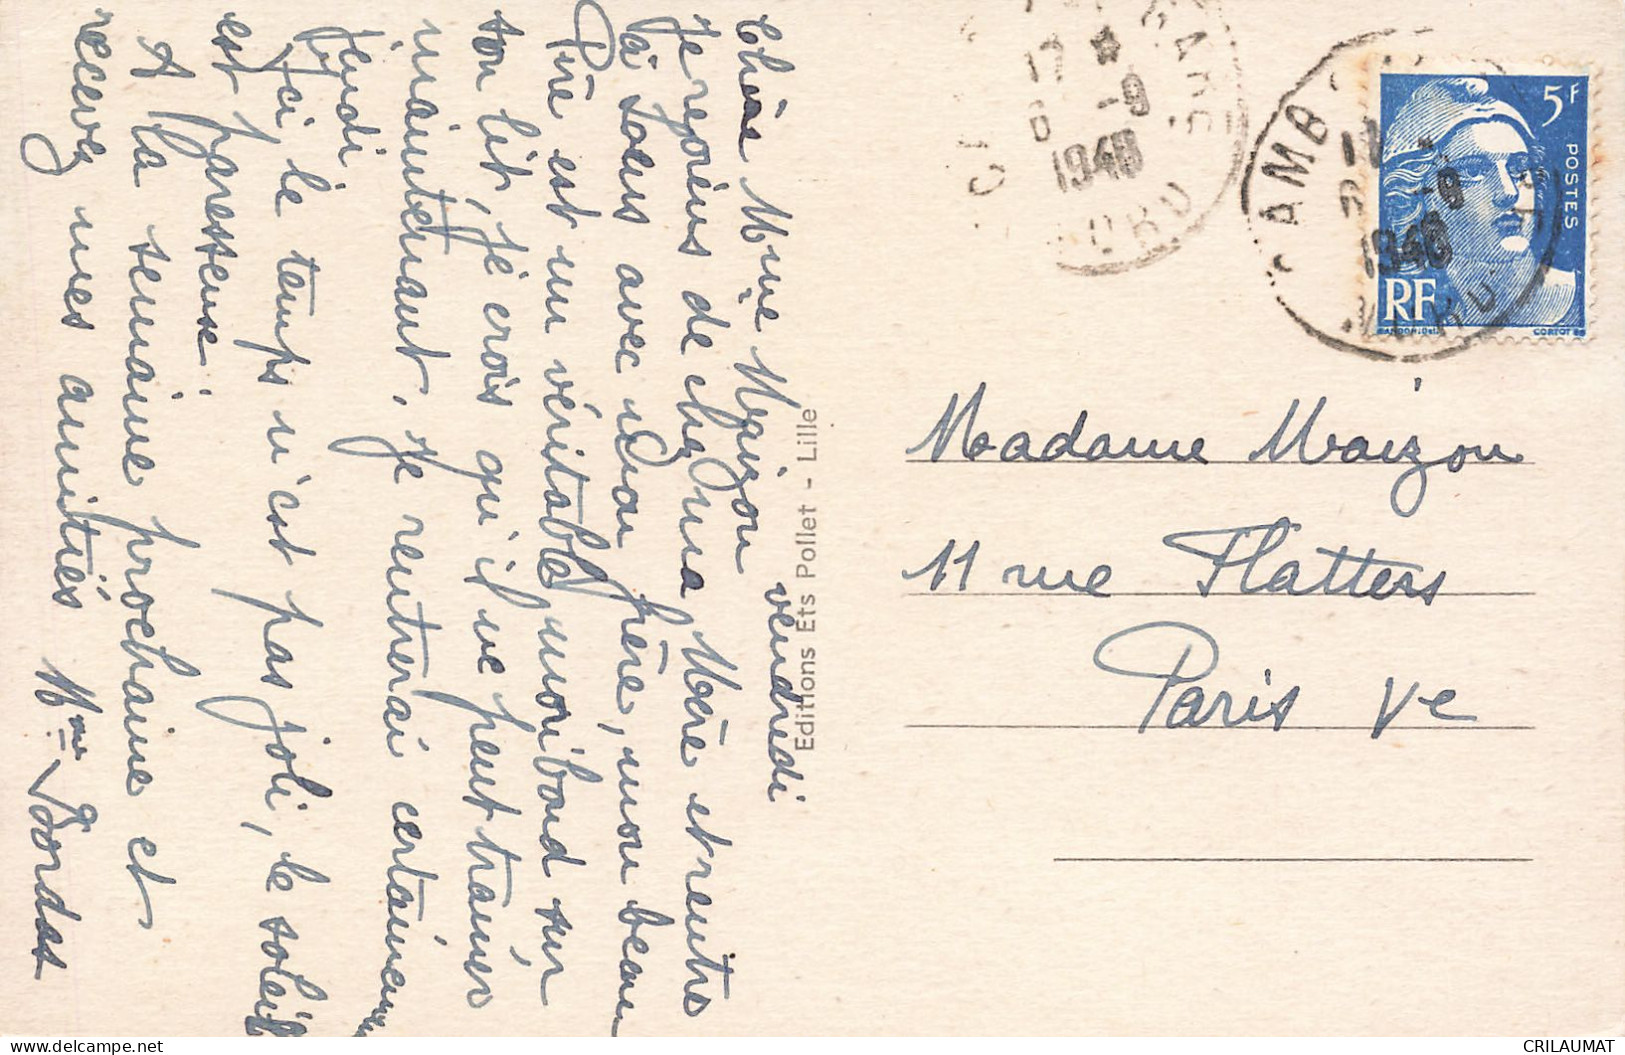 vendredi
Chère Mme Maizon
Je reviens de chez ma Mère et rentre
ici Sours avec mon frère, mon beau
Père est un véritable moribond sur
son lit, je crois qu'il ne peut trainer
maintenant, je rentrerai certainement
Jeudi
Ici, le temps n'est pas joli, le soleil
est paresseuse
A la semaine prochaine et
recevez mes amitiés Mme Bordas
Editions Ets Pollet - Lille
17 *
6 -9
1948
CAMBO
-9
1948
5F
POSTES
RF
GANDON
CORTOT
Madame Maizon
11 rue Flatters
Paris Ve
CRILAUMAT